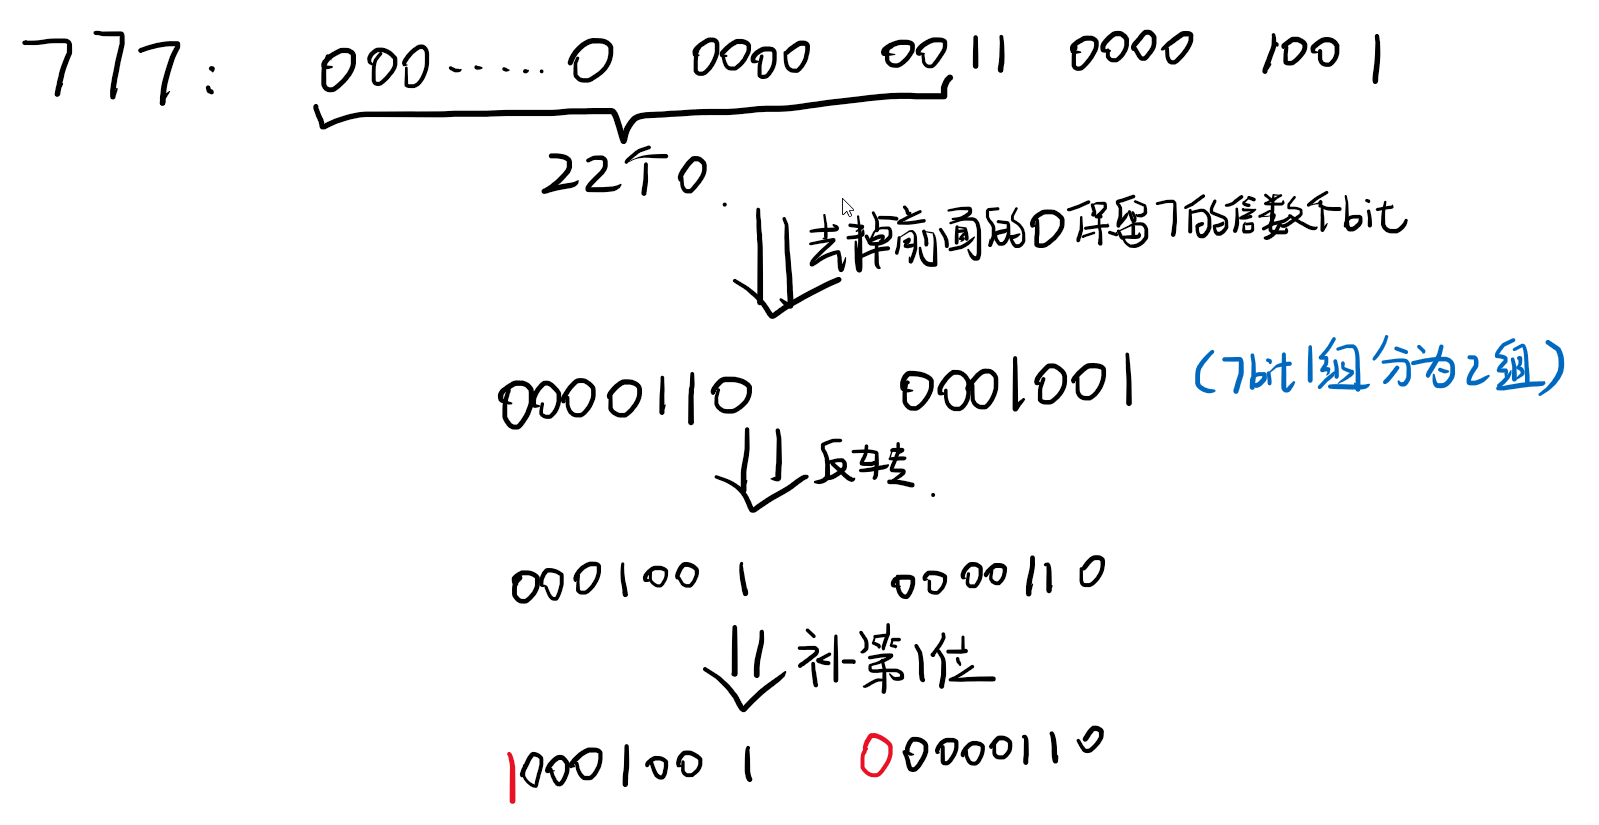 777: 000.....0 0000 0011 0000 1001
22个0
去掉前面的0保留7的倍数个bit
0000110 0001001 (7bit1组分为2组)
反转
0001001 0000110
补第1位
10001001 00000110